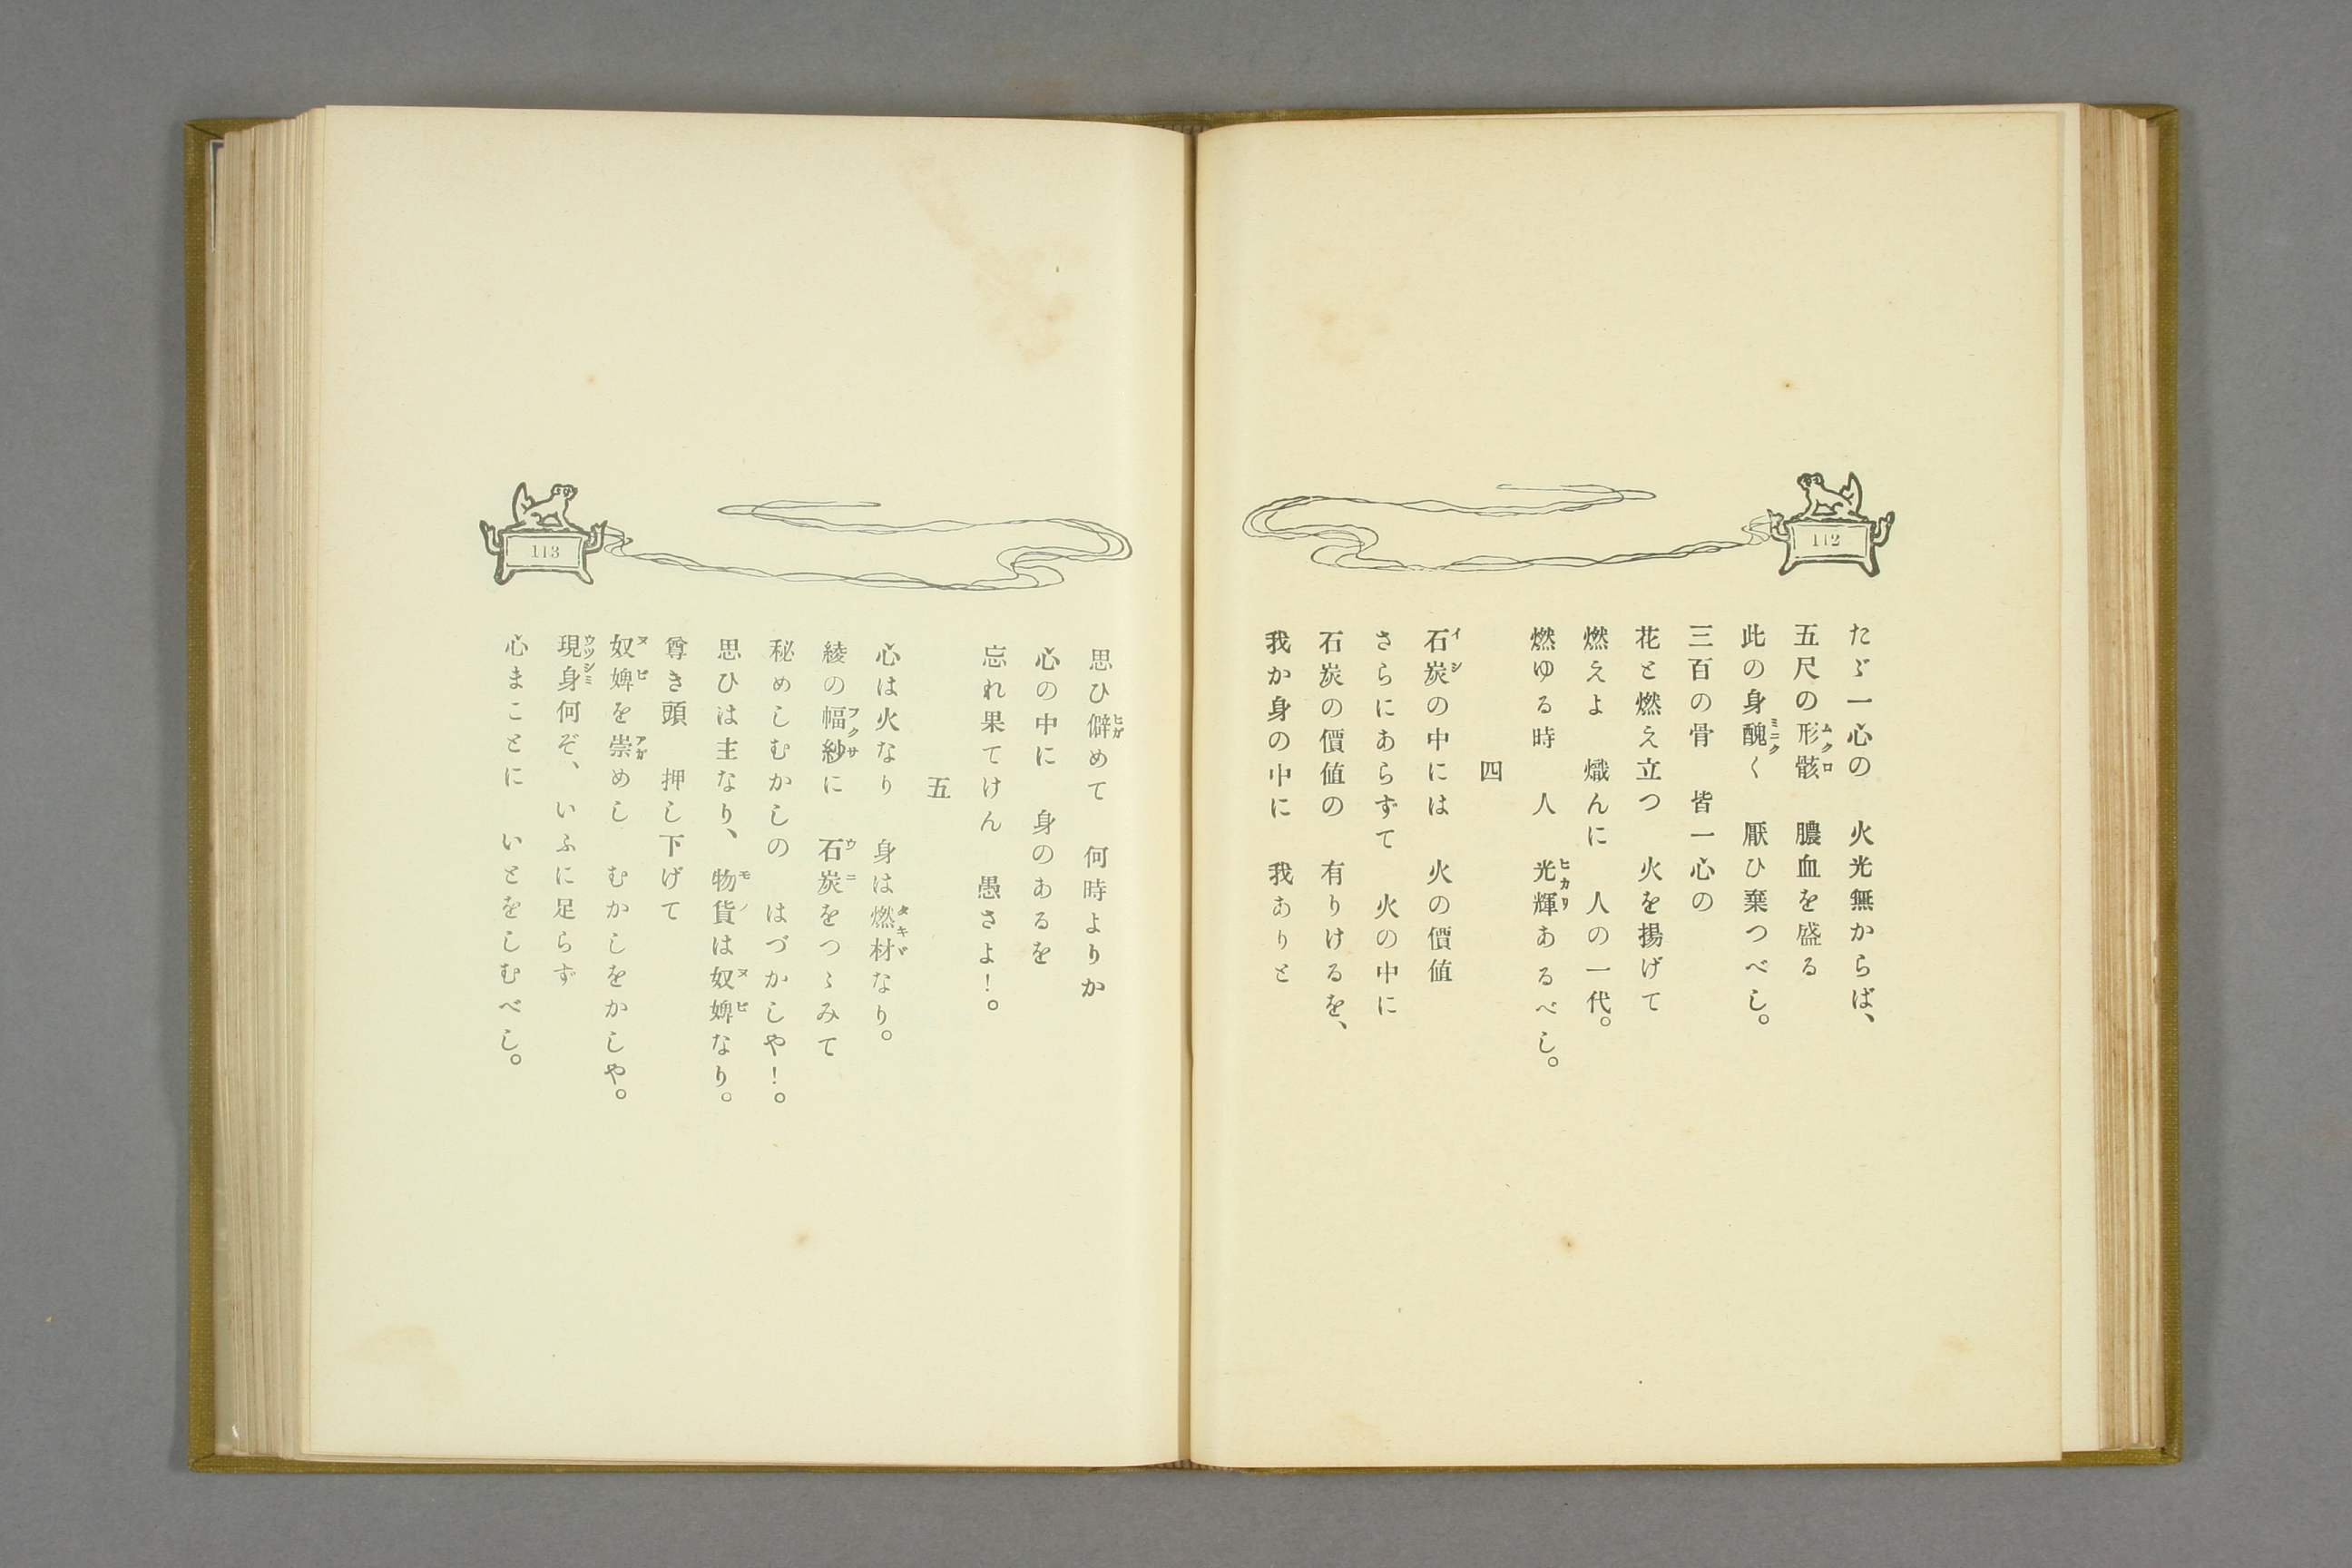 112
たゞ一心の　火光無からば、
五尺の形骸　膿血を盛る
此の身醜く　厭ひ棄つべし。
三百の骨　皆一心の
花と燃え立つ　火を揚げて
燃えよ　熾んに　人の一代。
燃ゆる時　人　光輝あるべし。
四
石炭の中には　火の價値
さらにあらずて　火の中に
石炭の價値の　有りけるを、
我か身の中に　我ありと
113
思ひ僻めて　何時よりか
心の中に　身のあるを
忘れ果てけん　愚さよ！。
五
心は火なり　身は燃材なり。
綾の幅紗に　石炭をつゝみて
秘めしむかしの　はづかしや！。
思ひは主なり、物貨は奴婢なり。
尊き頭　押し下げて
奴婢を崇めし　むかしをかしや。
現身何ぞ、いふに足らず
心まことに　いとをしむべし。